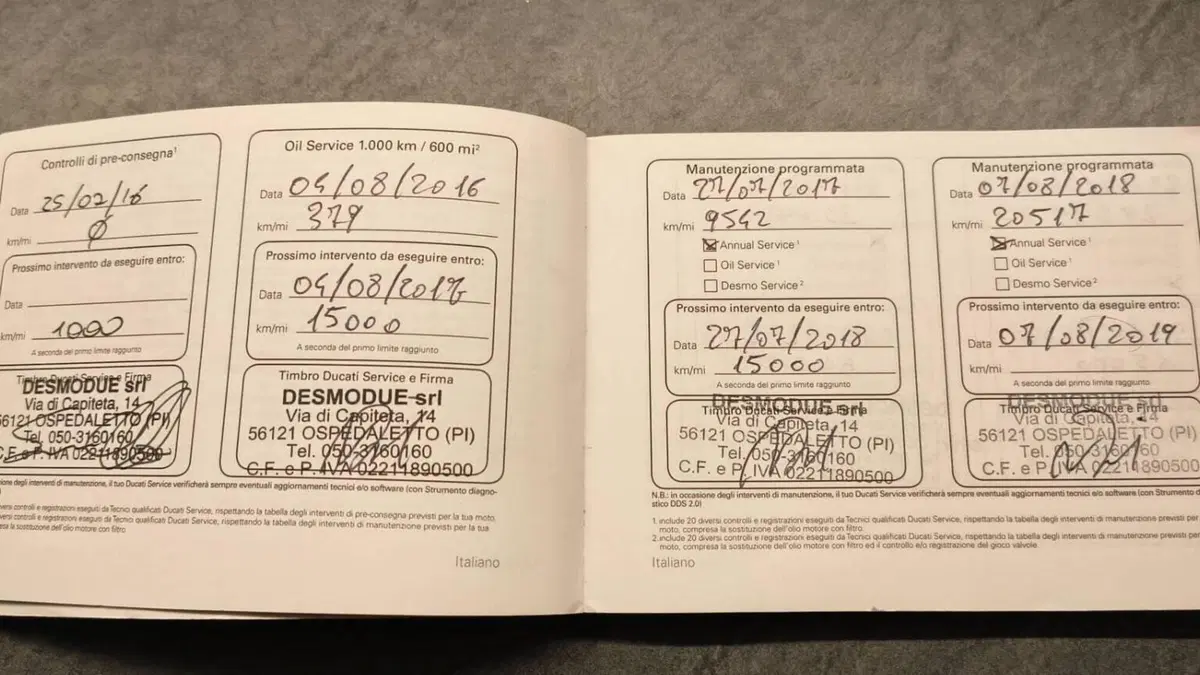 Controlli di pre-consegna¹
Data 25/02/16
km/mi 0
Prossimo intervento da eseguire entro:
Data
km/mi 1000
A seconda del primo limite raggiunto
Timbro Ducati Service e Firma
DESMODUE srl
Via di Capiteta, 14
56121 OSPEDALETTO (PI)
Tel. 050-3160160
C.F. e P. IVA 02211890500
Oil Service 1.000 km / 600 mi²
Data 04/08/2016
km/mi 379
Prossimo intervento da eseguire entro:
Data 04/08/2017
km/mi 15000
A seconda del primo limite raggiunto
Timbro Ducati Service e Firma
DESMODUE srl
Via di Capiteta, 14
56121 OSPEDALETTO (PI)
Tel. 050-3160160
C.F. e P. IVA 02211890500
degli interventi di manutenzione, il tuo Ducati Service verificherà sempre eventuali aggiornamenti tecnici e/o software (con Strumento diagno-
controlli e registrazioni eseguiti da Tecnici qualificati Ducati Service, rispettando la tabella degli interventi di pre-consegna previsti per la tua moto.
controlli e registrazioni eseguiti da Tecnici qualificati Ducati Service, rispettando la tabella degli interventi di manutenzione previsti per la tua
la sostituzione dell'olio motore con filtro.
Italiano
Manutenzione programmata
Data 27/07/2017
km/mi 9542
Annual Service¹
Oil Service¹
Desmo Service²
Prossimo intervento da eseguire entro:
Data 27/07/2018
km/mi 15000
A seconda del primo limite raggiunto
Timbro Ducati Service e Firma
DESMODUE srl
Via di Capiteta, 14
56121 OSPEDALETTO (PI)
Tel. 050-3160160
C.F. e P. IVA 02211890500
Manutenzione programmata
Data 07/08/2018
km/mi 20517
Annual Service¹
Oil Service¹
Desmo Service²
Prossimo intervento da eseguire entro:
Data 07/08/2019
km/mi
A seconda del primo limite raggiunto
Timbro Ducati Service e Firma
DESMODUE srl
Via di Capiteta, 14
56121 OSPEDALETTO (PI)
Tel. 050-3160160
C.F. e P. IVA 02211890500
N.B.: in occasione degli interventi di manutenzione, il tuo Ducati Service verificherà sempre eventuali aggiornamenti tecnici e/o software (con Strumento
stico DDS 2.0)
1. include 20 diversi controlli e registrazioni eseguiti da Tecnici qualificati Ducati Service, rispettando la tabella degli interventi di manutenzione previsti per
moto, compresa la sostituzione dell'olio motore con filtro.
2. include 20 diversi controlli e registrazioni eseguiti da Tecnici qualificati Ducati Service, rispettando la tabella degli interventi di manutenzione previsti per
moto, compresa la sostituzione dell'olio motore con filtro ed il controllo e/o registrazione del gioco valvole.
Italiano